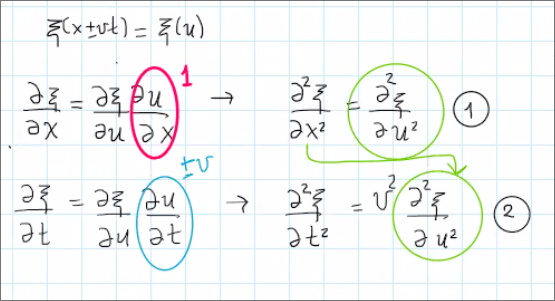 ξ(x±vt) = ξ(u)
∂ξ/∂x = ∂ξ/∂u ∂u/∂x 1 → ∂²ξ/∂x² = ∂²ξ/∂u² ①
∂ξ/∂t = ∂ξ/∂u ∂u/∂t ±v → ∂²ξ/∂t² = v² ∂²ξ/∂u² ②